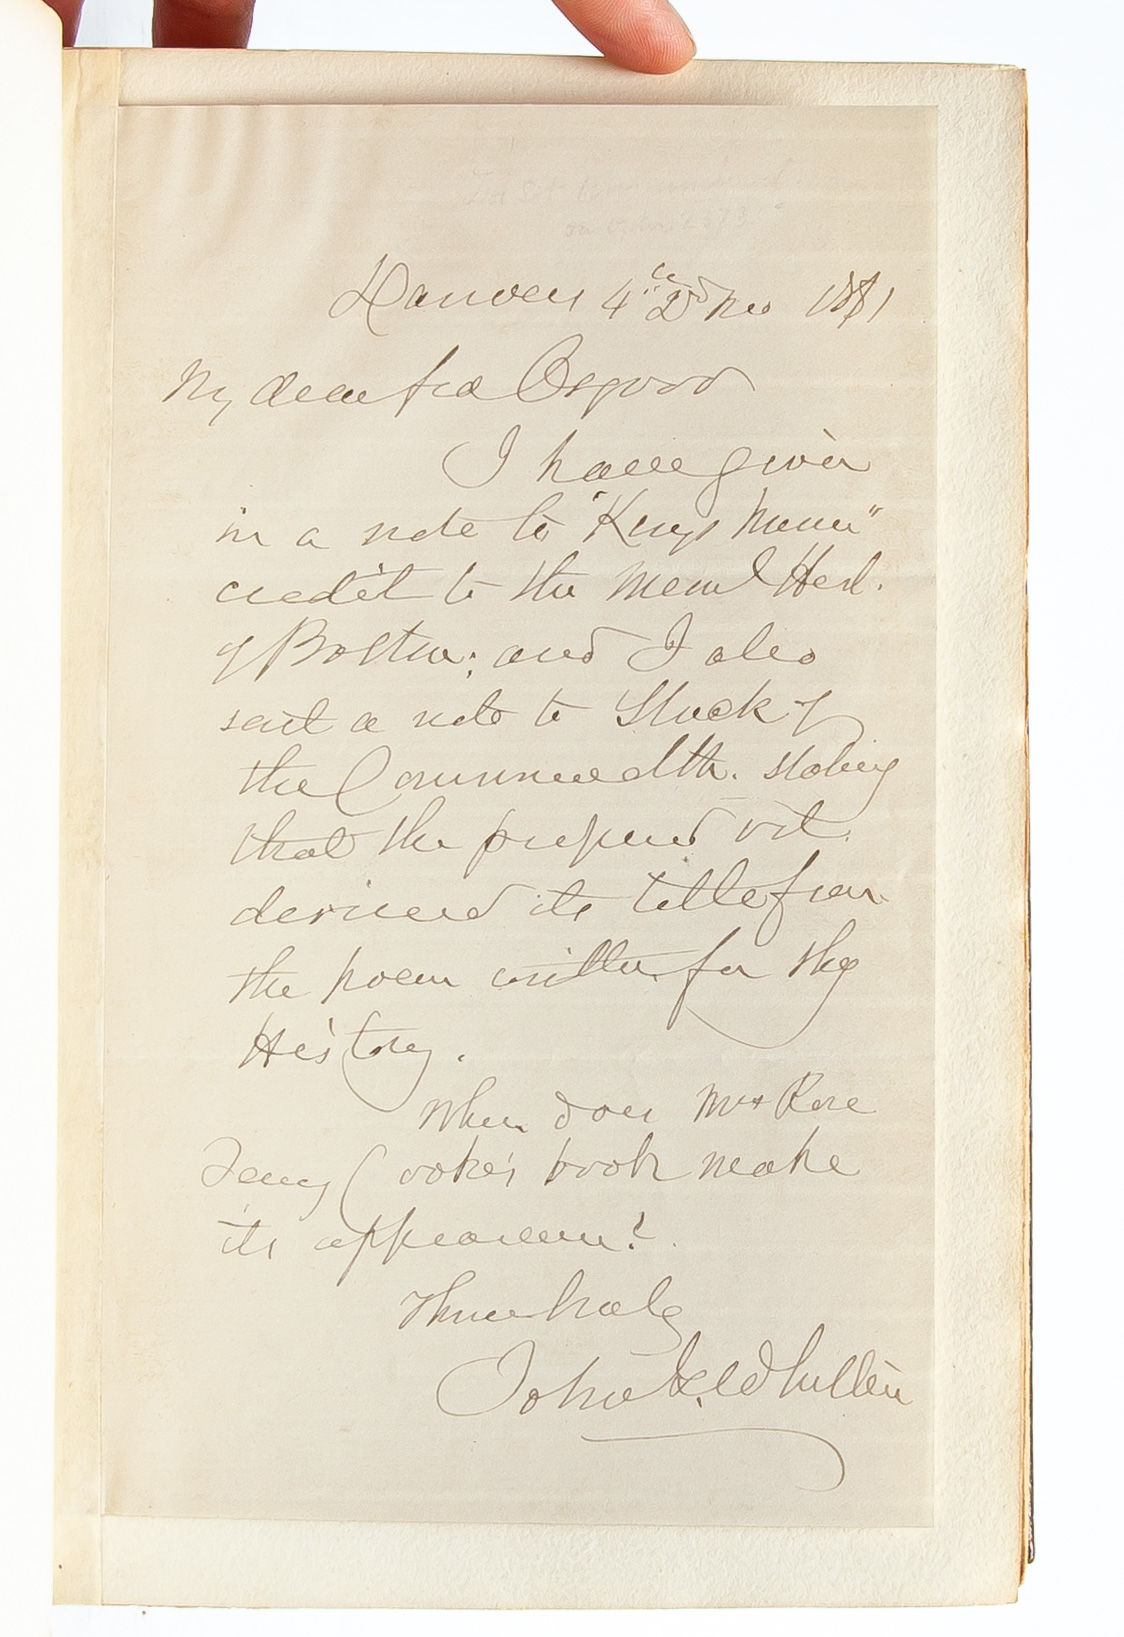 Danvers 4th 2d Mo 1881
My dear frd Osgood
I have given
in a note to "King's Missive"
credit to the Meml Hist.
of Boston; and I also
sent a note to Slack of
the Commonwealth. stating
that the proposed vol.
derived its title from
the poem written for the
History.
When does Mrs Rose
Terry Cooke's book make
its appearance?
Thine truly
John G. Whittier